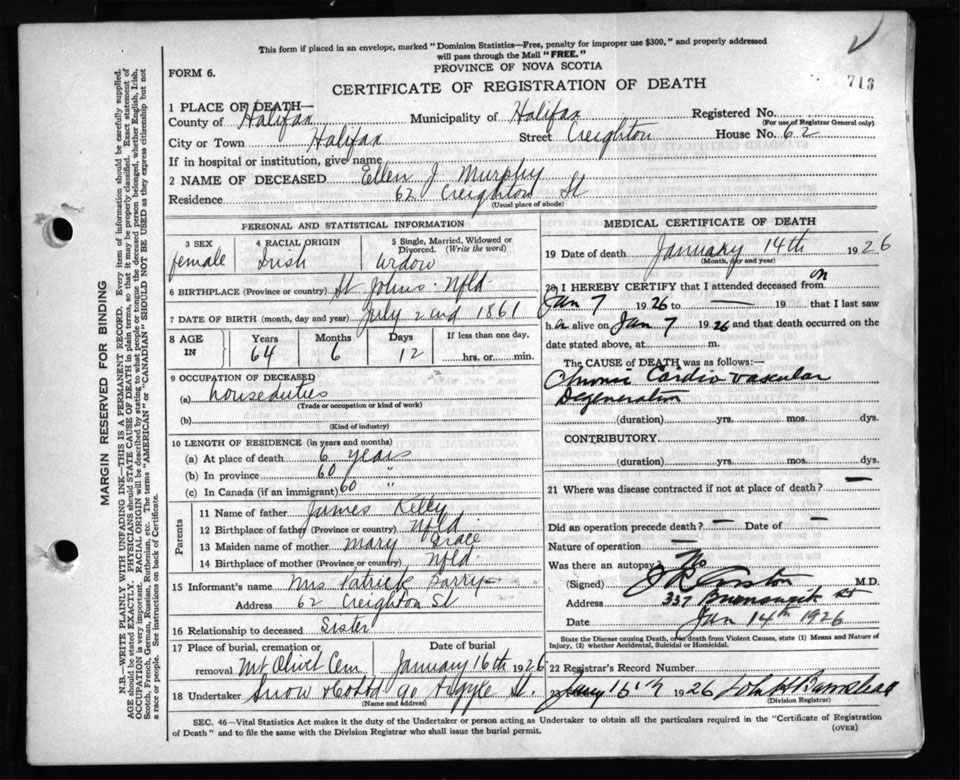 This form if placed in an envelope, marked "Dominion Statistics—Free, penalty for improper use $300," and properly addressed
will pass through the Mail "FREE."
FORM 6.
PROVINCE OF NOVA SCOTIA
713
CERTIFICATE OF REGISTRATION OF DEATH
1 PLACE OF DEATH—
County of Halifax Municipality of Halifax Registered No.
(For use of Registrar General only)
City or Town Halifax Street Creighton House No. 62
If in hospital or institution, give name
2 NAME OF DECEASED Ellen J Murphy
Residence 62 Creighton St
(Usual place of abode)
PERSONAL AND STATISTICAL INFORMATION
3 SEX female
4 RACIAL ORIGIN Irish
5 Single, Married, Widowed or
Divorced. (Write the word)
6 BIRTHPLACE (Province or country) St Johns Nfld
7 DATE OF BIRTH (month, day and year) July 2nd 1861
8 AGE IN Years 64 Months 6 Days 12 If less than one day, hrs. or min.
9 OCCUPATION OF DECEASED
(a) houseduties
(Trade or occupation or kind of work)
(b)
(Kind of industry)
10 LENGTH OF RESIDENCE (in years and months)
(a) At place of death 6 years
(b) In province 60 "
(c) In Canada (if an immigrant) 60 "
Parents
11 Name of father James Kelly
12 Birthplace of father (Province or country) Nfld
13 Maiden name of mother Mary Grace
14 Birthplace of mother (Province or country) Nfld.
15 Informant's name Mrs Patrick Barry
Address 62 Creighton St
16 Relationship to deceased Sister
17 Place of burial, cremation or Date of burial
removal Mt Olivet Cem January 16th 1926
18 Undertaker Snow 90 Argyle St.
(Name and address)
MEDICAL CERTIFICATE OF DEATH
19 Date of death January 14th 1926
(Month, day and year)
20 I HEREBY CERTIFY that I attended deceased from on
Jan 7 1926 to — 19 that I last saw
h alive on Jan 7 1926 and that death occurred on the
date stated above, at m.
The CAUSE OF DEATH was as follows:—
Chronic Cardio vascular
Degeneration
(duration) yrs. mos. dys.
CONTRIBUTORY
(duration) yrs. mos. dys.
21 Where was disease contracted if not at place of death? —
Did an operation precede death? — Date of —
Nature of operation —
Was there an autopsy No
(Signed) M.D.
Address 337 Brunswick St
Date Jan 14th 1926
State the Disease causing Death, or in death from Violent Causes, state (1) Means and Nature of
Injury, (2) whether Accidental, Suicidal or Homicidal.
22 Registrar's Record Number
23 15th 1926 John H Barnstead
(Division Registrar)
SEC. 46—Vital Statistics Act makes it the duty of the Undertaker or person acting as Undertaker to obtain all the particulars required in the "Certificate of Registration
of Death" and to file the same with the Division Registrar who shall issue the burial permit.
(OVER)
MARGIN RESERVED FOR BINDING
N.B.—WRITE PLAINLY WITH UNFADING INK—THIS IS A PERMANENT RECORD. Every item of information should be carefully supplied.
AGE should be stated EXACTLY. PHYSICIANS should STATE CAUSE OF DEATH in plain terms, so that it may be properly classified. Exact statement of
OCCUPATION is very important. RACIAL ORIGIN will be described by stating to what people or tongue the deceased person belonged, whether English, Irish,
Scotch, French, German, Russian, Ruthenian, etc. The terms "AMERICAN" or "CANADIAN" SHOULD NOT BE USED as they express citizenship but not
a race or people. See instructions on back of Certificate.